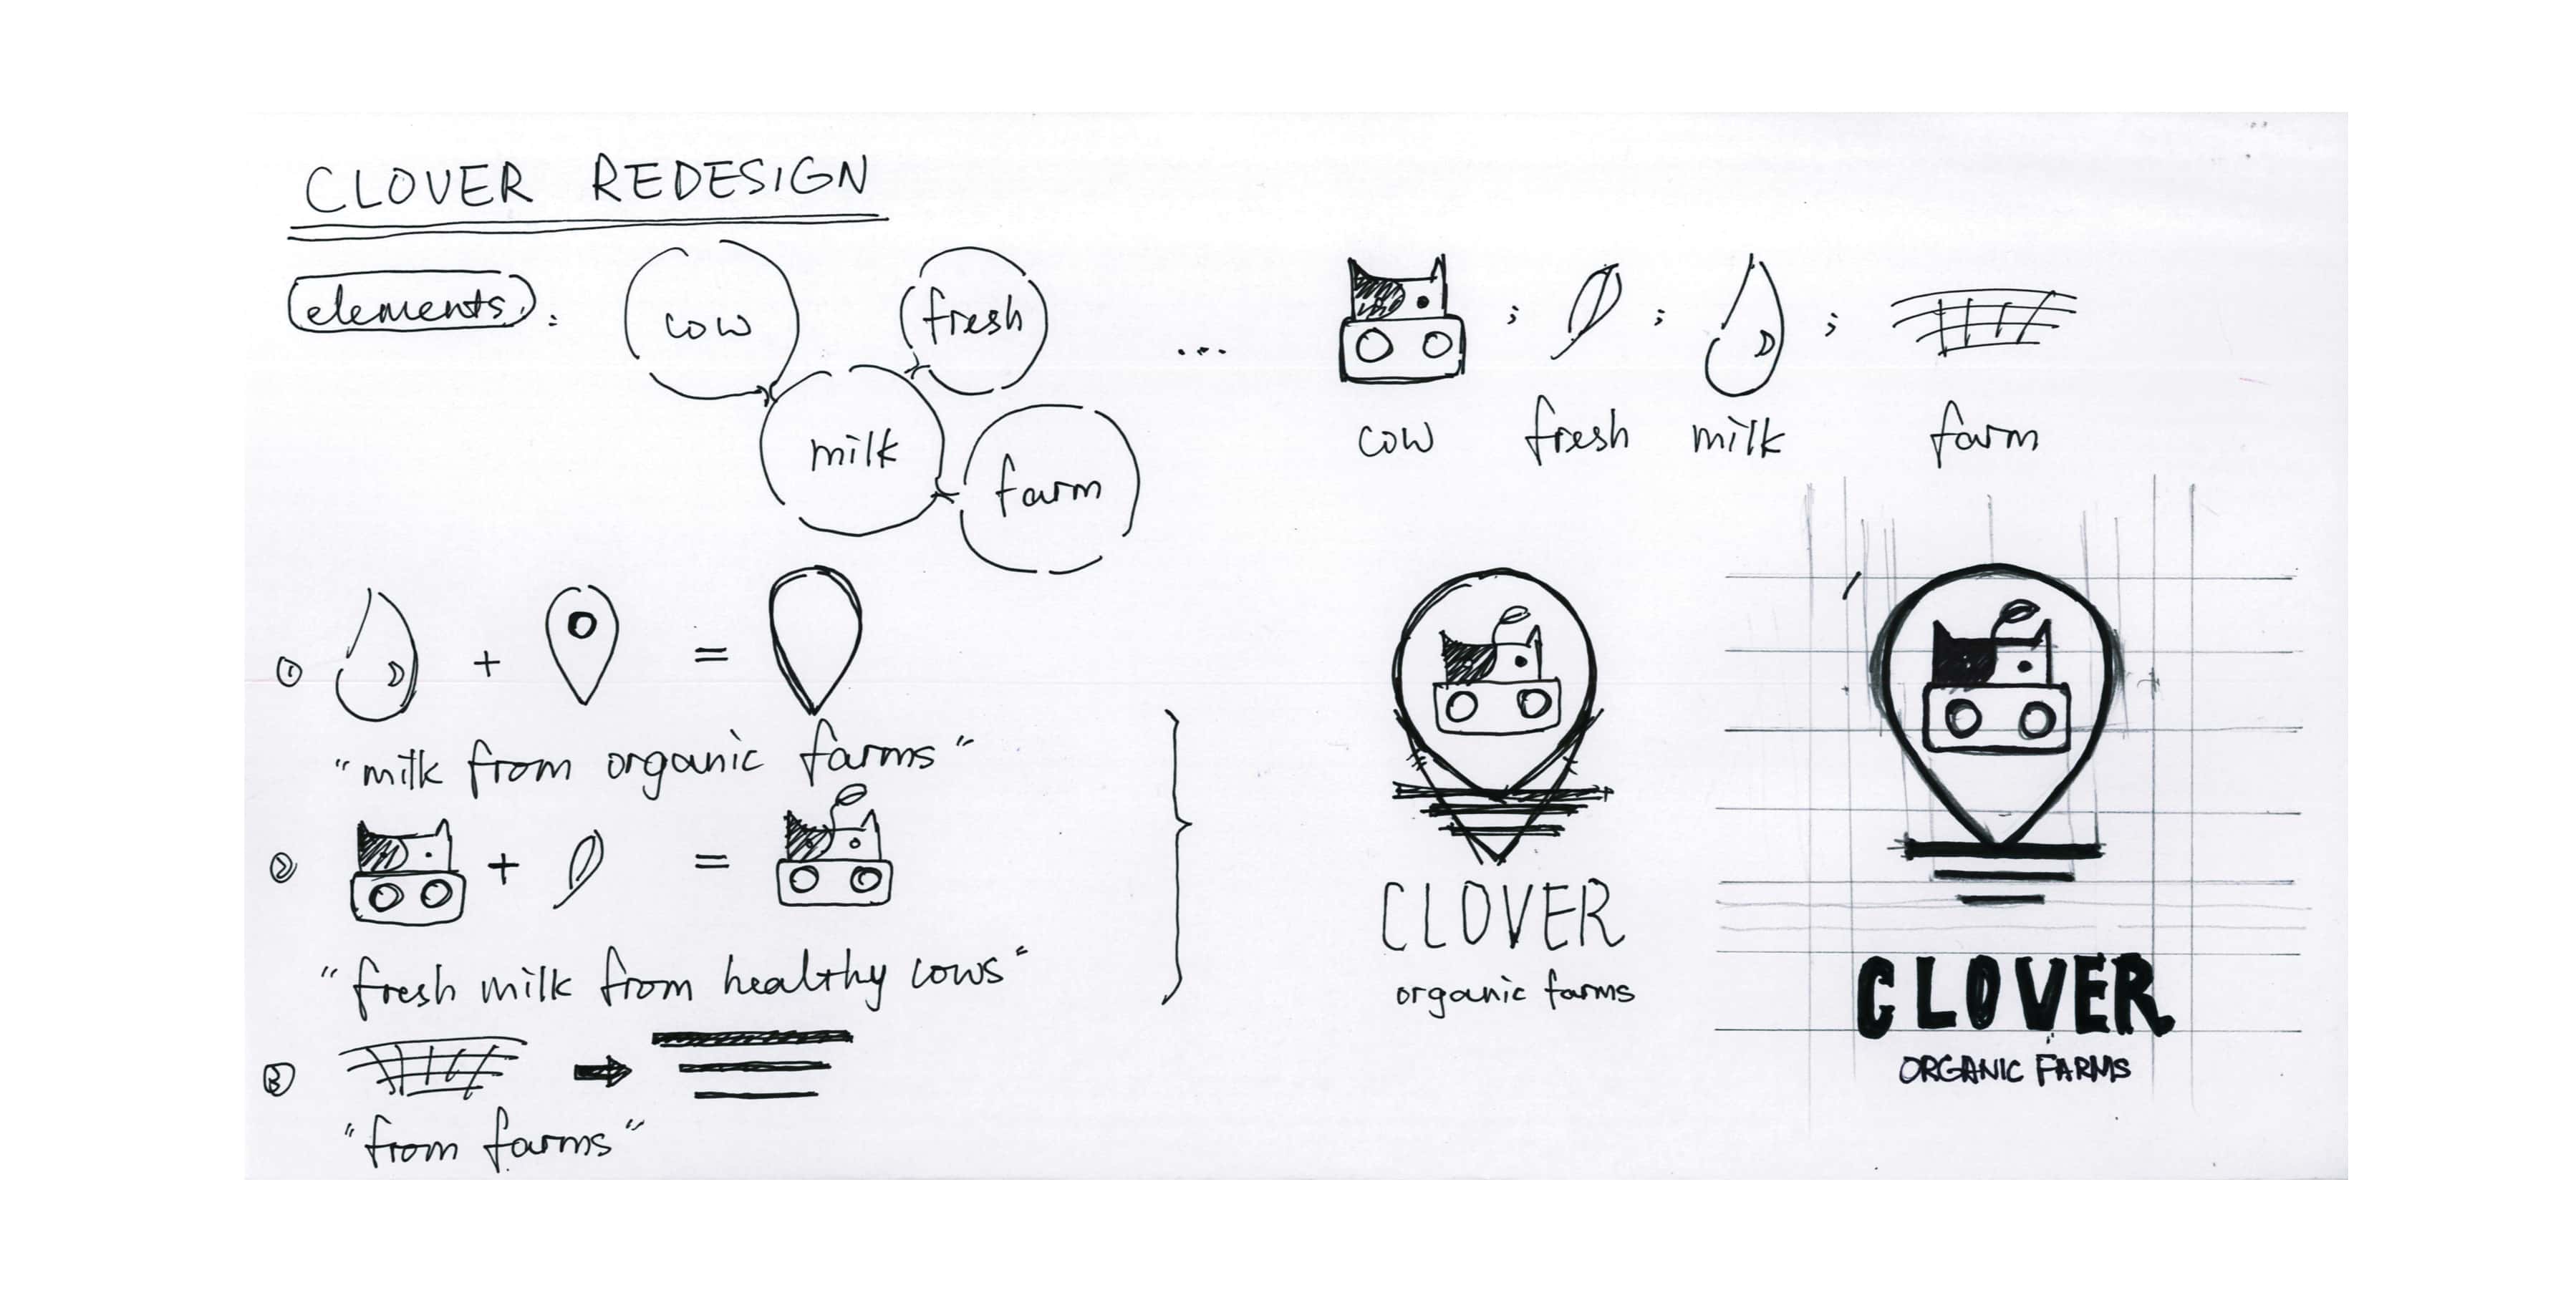 CLOVER REDESIGN
elements:
cow
fresh
milk
farm
...
cow ; fresh ; milk ; farm
① + =
"milk from organic farms"
② + =
"fresh milk from healthy cows"
③
"from farms"
CLOVER
organic farms
CLOVER
ORGANIC FARMS